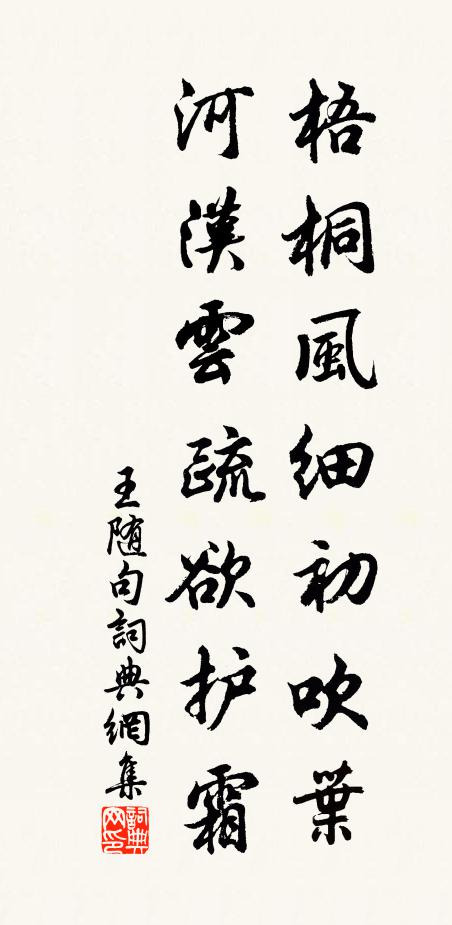 梧桐風細初吹葉
河漢雲疏欲护霜
王随句詞典網集
詞典网印